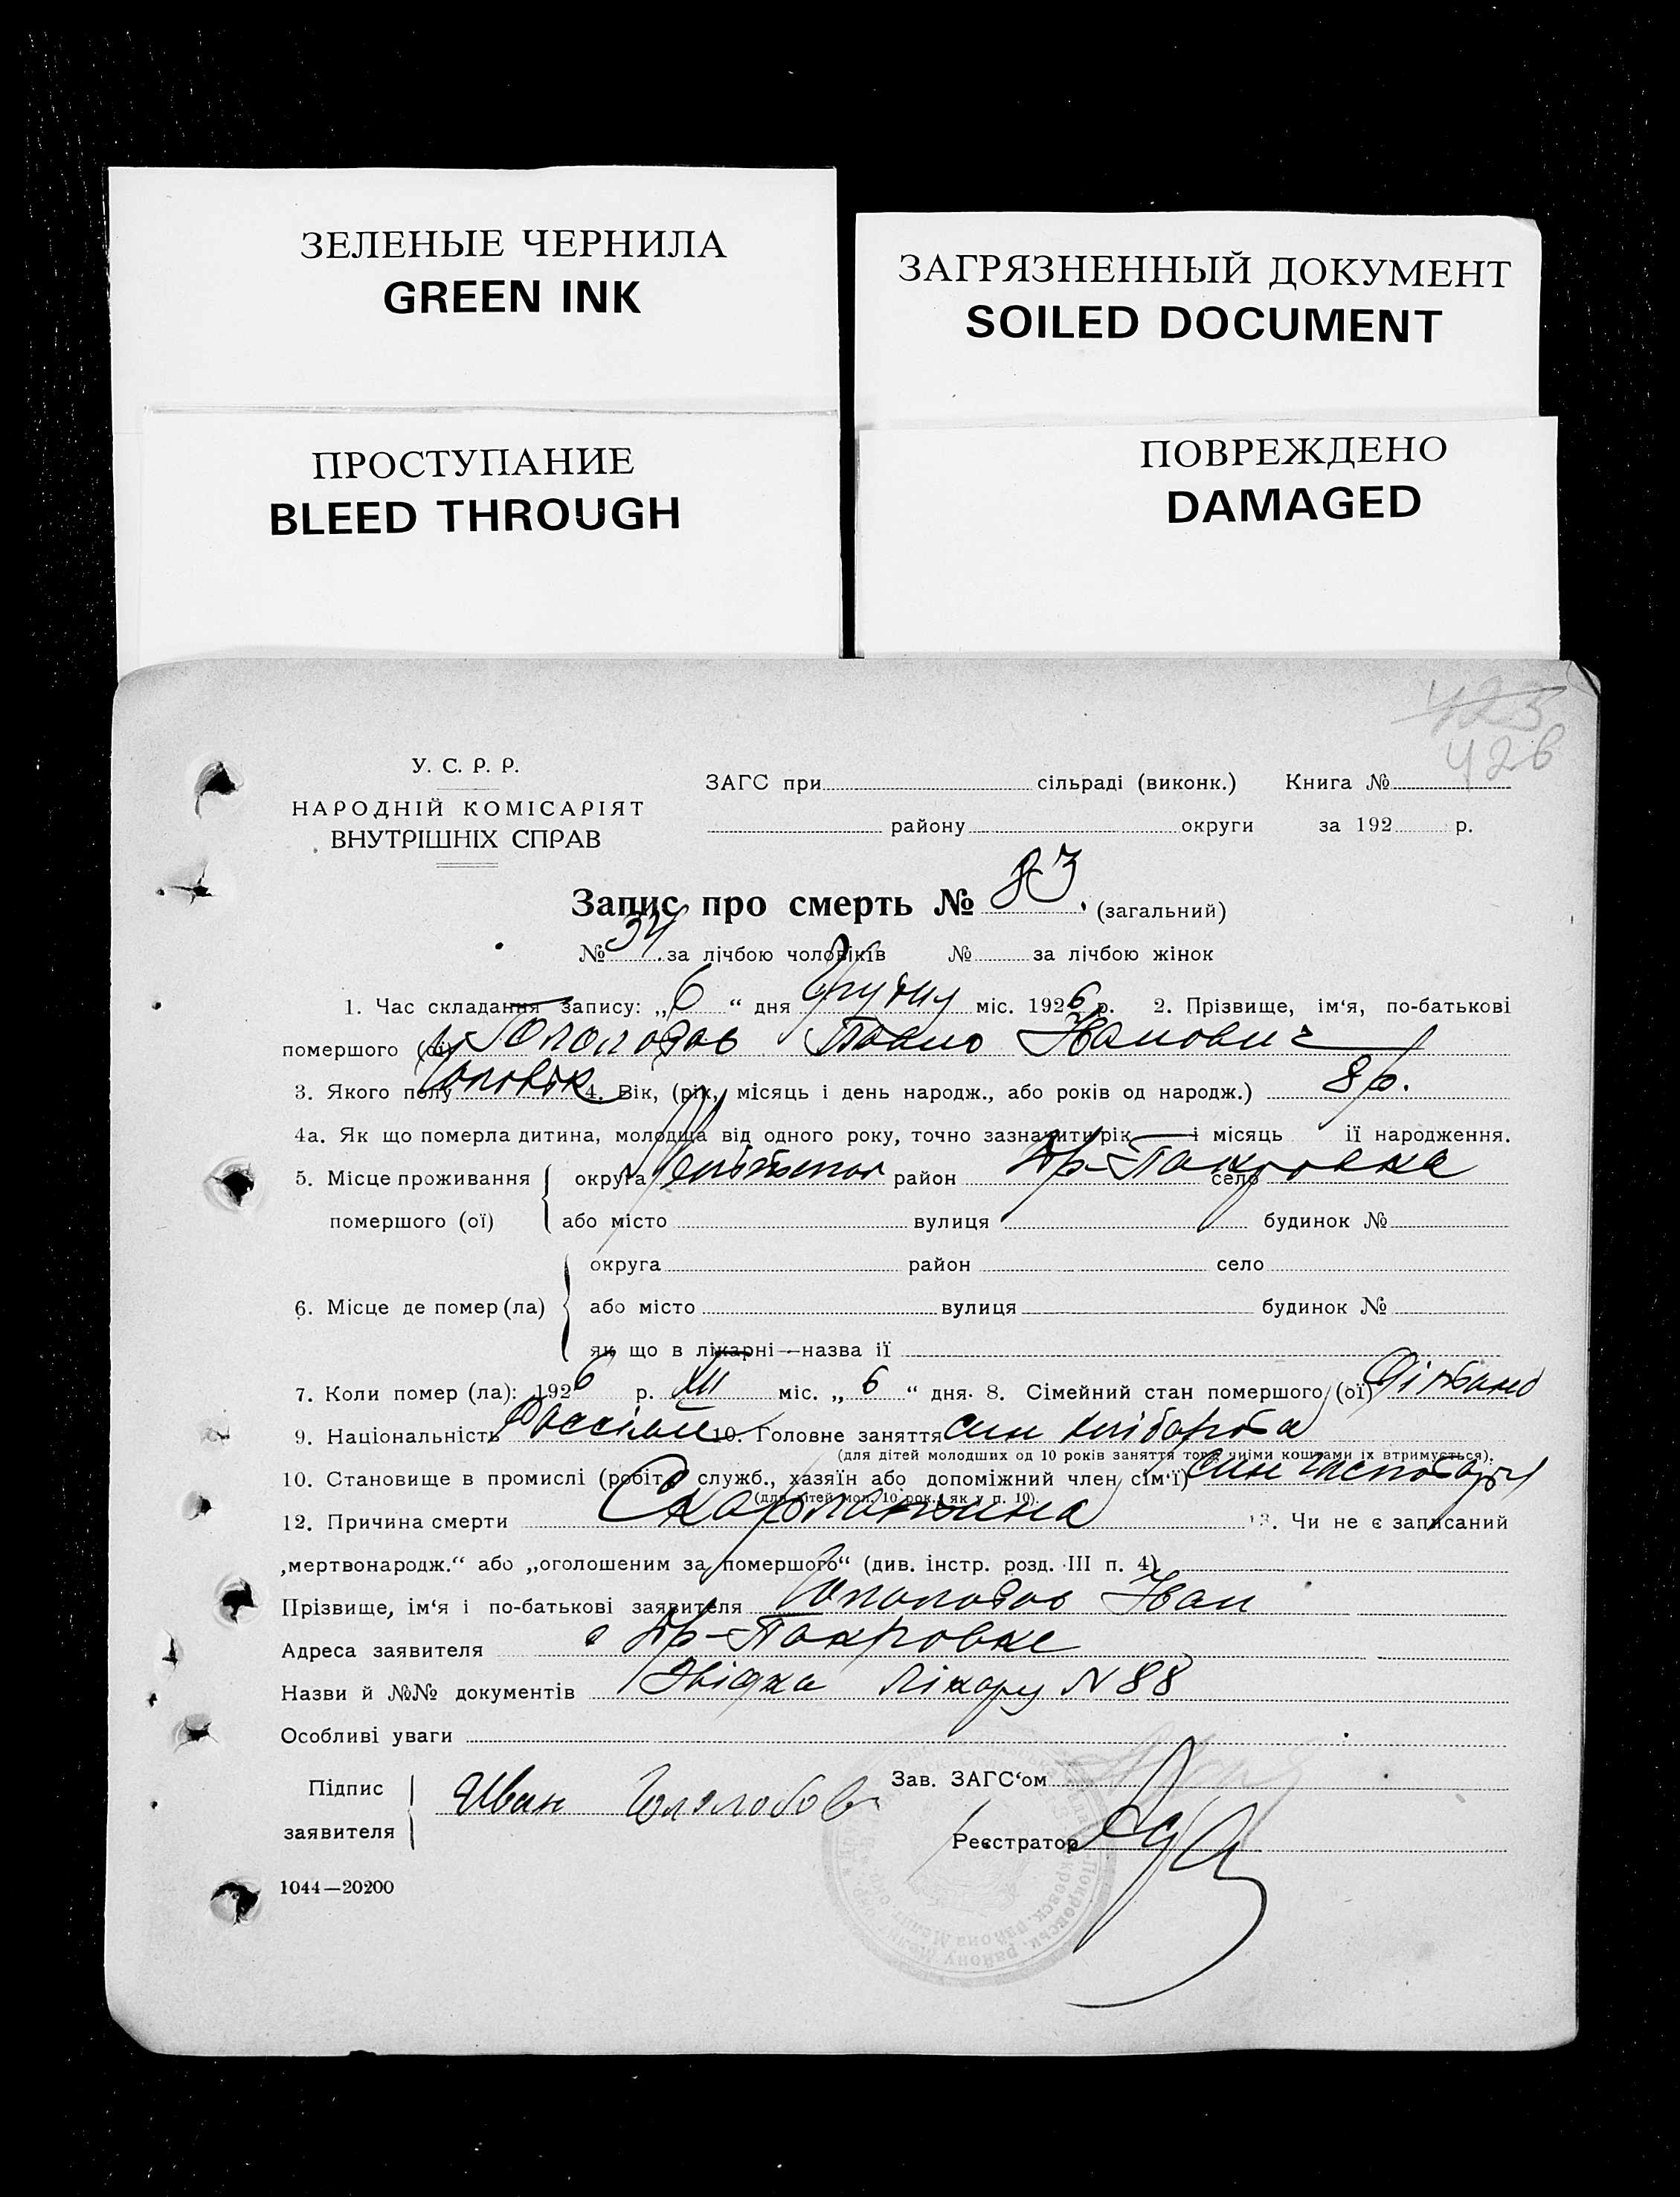 ЗЕЛЕНЫЕ ЧЕРНИЛА
GREEN INK
ЗАГРЯЗНЕННЫЙ ДОКУМЕНТ
SOILED DOCUMENT
ПРОСТУПАНИЕ
BLEED THROUGH
ПОВРЕЖДЕНО
DAMAGED
423
426
У. С. Р. Р.
НАРОДНІЙ КОМІСАРІЯТ
ВНУТРІШНІХ СПРАВ
ЗАГС при сільраді (виконк.) Книга №
району округи за 192 р.
Запис про смерть № 83. (загальний)
№ 34 за лічбою чоловіків № за лічбою жінок
1. Час складання запису: „6“ дня Грудня міс. 1926 р. 2. Прізвище, ім‘я, по-батькові
помершого (ої) Иванович
3. Якого полу Чоловік 4. Вік, (рік, місяць і день народж., або років од народж.) 8 р.
4а. Як що померла дитина, молодща від одного року, точно зазначити рік — і місяць її народження.
5. Місце проживання округа район Нр-Покровка село
помершого (ої) або місто вулиця будинок №
округа район село
6. Місце де помер (ла) або місто вулиця будинок №
як що в лікарні—назва її
7. Коли помер (ла): 1926 р. XII міс. „6“ дня. 8. Сімейний стан помершого (ої)
9. Національність 10. Головне заняття син хлібороба
(для дітей молодших од 10 років заняття того, чіими коштами іх втримується).
10. Становище в промислі (робітн. служб., хазяїн або допоміжний член сім‘ї) син
(для дітей мол. 10 рок., як у п. 10).
12. Причина смерти Скарлатина 13. Чи не є записаний
„мертвонародж.“ або „оголошеним за помершого“ (див. інстр. розд. III п. 4)
Прізвище, ім‘я і по-батькові заявителя Иван
Адреса заявителя с Нр-Покровке
Назви й №№ документів Звідка Лікару № 88
Особливі уваги
Підпис
заявителя
Иван Гололобов
Зав. ЗАГС‘ом
Реєстратор
1044—20200